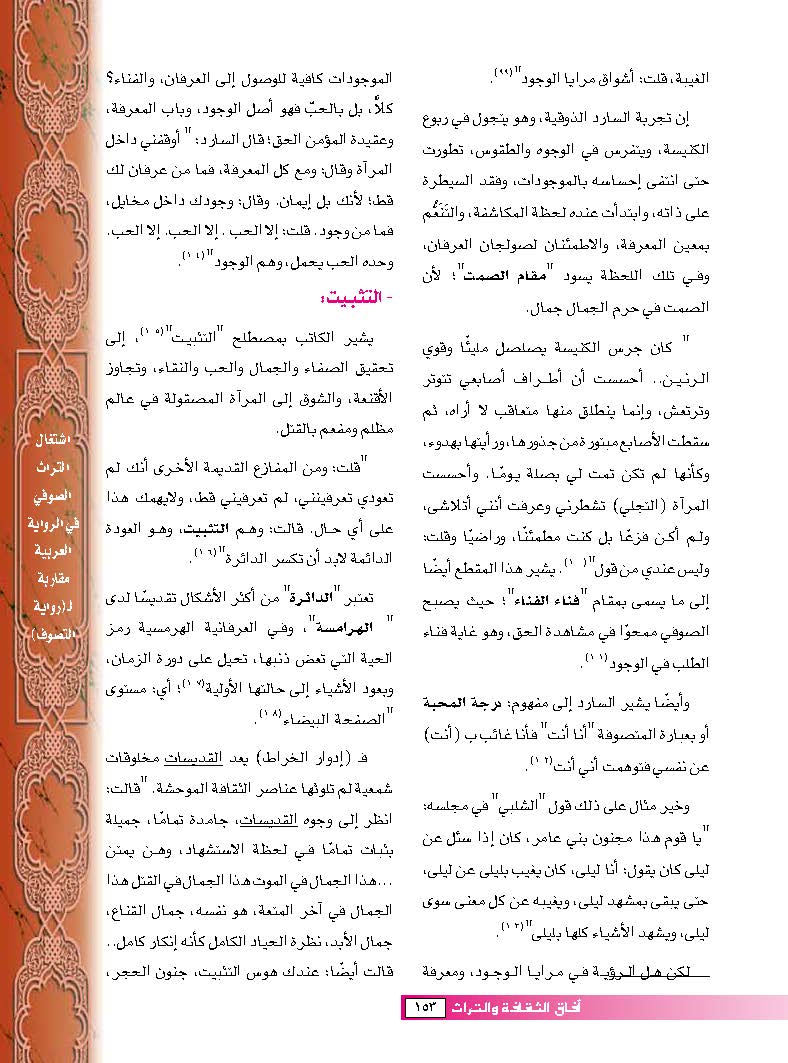 الغيبة، قلت: أشواق مرايا الوجود"(٩٩).
إن تجربة السارد الذوقية، وهو يتجول في ربوع
الكنيسة، ويتفرس في الوجوه والطقوس، تطورت
حتى انتفى إحساسه بالموجودات، وفقد السيطرة
على ذاته، وابتدأت عنده لحظة المكاشفة، والتَنَعُّم
بمعين المعرفة، والاطمئنان لصولجان العرفان،
وفي تلك اللحظة يسود "مقام الصمت"؛ لأن
الصمت في حرم الجمال جمال.
" كان جرس الكنيسة يصلصل مليئًا وقوي
الرنين.. أحسست أن أطراف أصابعي تتوتر
وترتعش، وإنما ينطلق منها متعاقب لا أراه، ثم
سقطت الأصابع مبتورة من جذورها، ورأيتها بهدوء،
وكأنها لم تكن تمت لي بصلة يومًا. وأحسست
المرآة (التجلي) تشطرني وعرفت أنني أتلاشى،
ولم أكن فزعًا بل كنت مطمئنًا، وراضيًا وقلت:
وليس عندي من قول"(١٠٠). يشير هذا المقطع أيضًا
إلى ما يسمى بمقام "فناء الفناء"؛ حيث يصبح
الصوفي ممحوًا في مشاهدة الحق، وهو غاية فناء
الطلب في الوجود(١٠١).
وأيضًا يشير السارد إلى مفهوم: درجة المحبة
أو بعبارة المتصوفة "أنا أنت" فأنا غائب ب (أنت)
عن نفسي فتوهمت أني أنت(١٠٢).
وخير مثال على ذلك قول "الشلبي" في مجلسه:
"يا قوم هذا مجنون بني عامر، كان إذا سئل عن
ليلى كان يقول: أنا ليلى، كان يغيب بليلى عن ليلى،
حتى يبقى بمشهد ليلى، ويغيبه عن كل معنى سوى
ليلى، ويشهد الأشياء كلها بليلى"(١٠٣).
لكن هل الرؤية في مرايا الوجود، ومعرفة
الموجودات كافية للوصول إلى العرفان، والفناء؟
كلاَّ، بل بالحبّ فهو أصل الوجود، وباب المعرفة،
وعقيدة المؤمن الحق؛ قال السارد: "أوقفني داخل
المرآة وقال: ومع كل المعرفة، فما من عرفان لك
قط؛ لأنك بل إيمان. وقال: وجودك داخل مخايل،
فما من وجود. قلت: إلا الحب. إلا الحب. إلا الحب.
وحده الحب يحمل، وهم الوجود"(١٠٤).
- التثبيت:
يشير الكاتب بمصطلح "التثبيت"(١٠٥)، إلى
تحقيق الصفاء والجمال والحب والنقاء، وتجاوز
الأقنعة، والشوق إلى المرآة المصقولة في عالم
مظلم ومفعم بالقتل.
"قلت: ومن المفازع القديمة الأخرى أنك لم
تعودي تعرفينني، لم تعرفيني قط، ولايهمك هذا
على أي حال. قالت: وهم التثبيت، وهو العودة
الدائمة لابد أن تكسر الدائرة"(١٠٦).
تعتبر "الدائرة" من أكثر الأشكال تقديسًا لدى
" الهرامسة"، وفي العرفانية الهرمسية رمز
الحية التي تعض ذنبها، تحيل على دورة الزمان،
ويعود الأشياء إلى حالتها الأولية(١٠٧)؛ أي: مستوى
"الصفحة البيضاء"(١٠٨).
فـ (إدوار الخراط) يعد القديسات مخلوقات
شمعية لم تلوثها عناصر الثقافة الموحشة. "قالت:
انظر إلى وجوه القديسات، جامدة تمامًا، جميلة
بثبات تمامًا في لحظة الاستشهاد، وهن يمتن
...هذا الجمال في الموت هذا الجمال في القتل هذا
الجمال في آخر المتعة، هو نفسه، جمال القناع،
جمال الأبد، نظرة الحياد الكامل كأنه إنكار كامل..
قالت أيضًا: عندك هوس التثبيت، جنون الحجر،
اشتغال
التراث
الصوفي
في الرواية
العربية
مقاربة
لـ(رواية
التصوف)
آفاق الثقافة والتراث ١٥٣